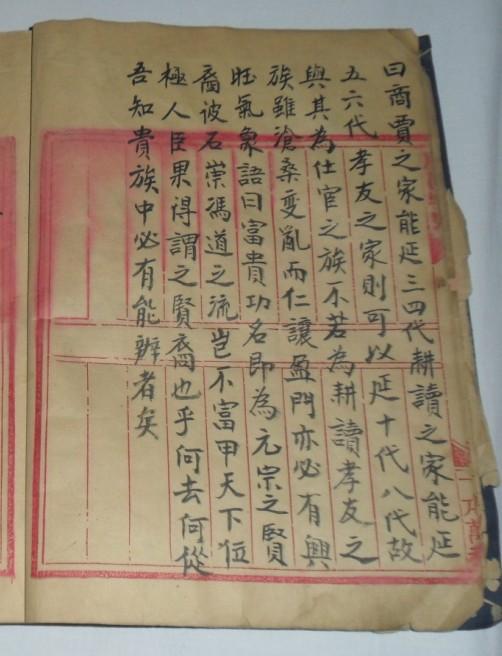 曰商賈之家能延三四代耕讀之家能延
五六代孝友之家則可以延十代八代故
與其為仕宦之族不若為耕讀孝友之
族雖滄桑變亂而仁讓盈門亦必有興
旺氣象語曰富貴功名即為元宗之賢
裔彼石崇馮道之流豈不富甲天下位
極人臣果得謂之賢裔也乎何去何從
吾知貴族中必有能辦者矣